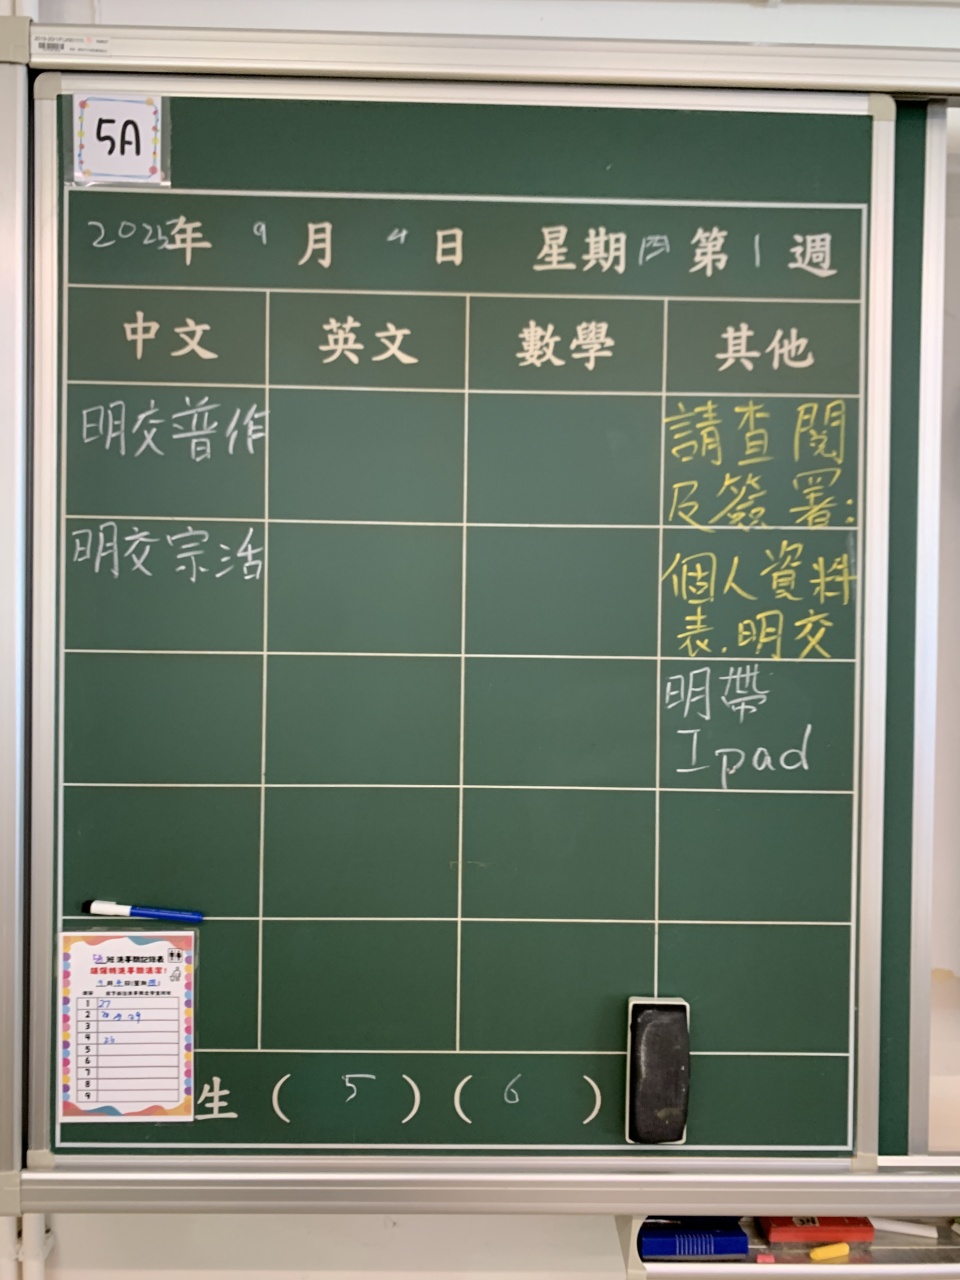 5A
2025年 9月 4日 星期四 第1週
中文 英文 數學 其他
明交普作
請查閱
及簽署:
明交宗活
個人資料
表.明交
明帶
Ipad
5A 班洗手間記錄表
請保持洗手間清潔!
9月4日(星期四)
1 27
2
3
4 26
5
6
7
8
9
生 ( 5 ) ( 6 )